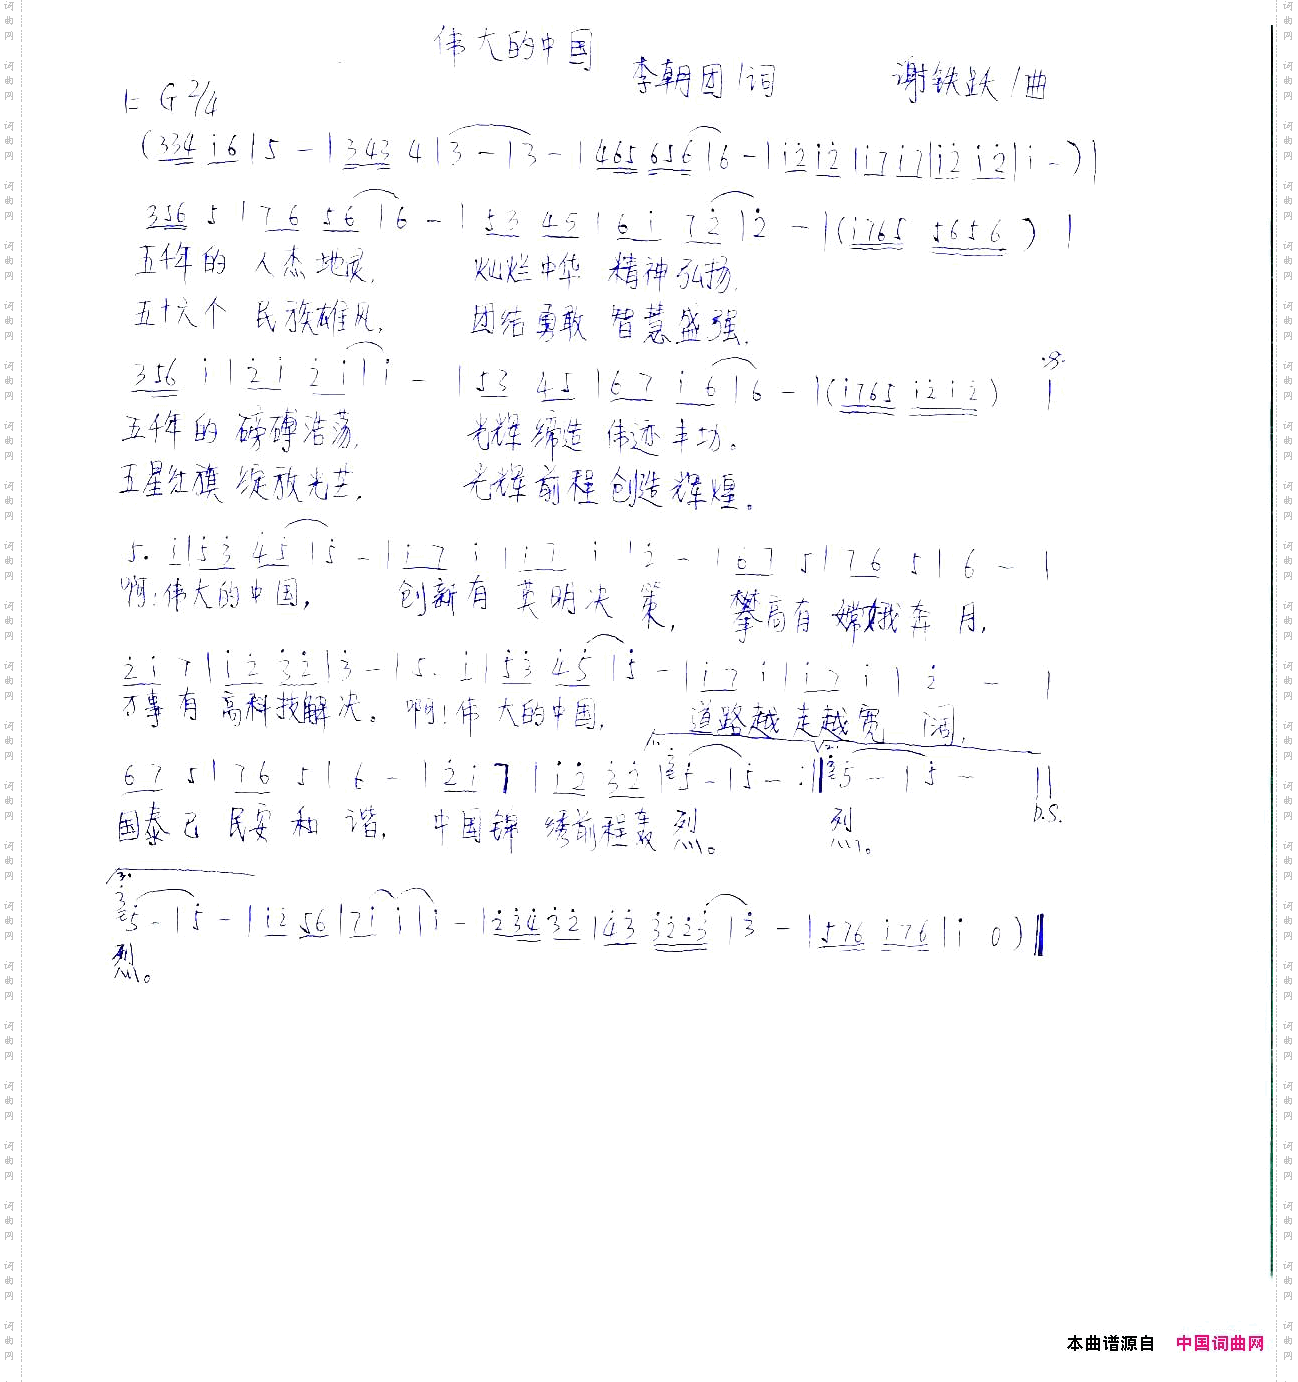 伟大的中国
李朝团/词 谢铁跃/曲
1=G 2/4
(334 i6|5 -|343 4|3 -|3 -|465 656|6 -|i2 i2|i7 i7|i2 i2|i -)|
356 5|76 56|6 -|53 45|6i 72|2 -|(i765 5656)|
五千年的 人杰地灵, 灿烂中华 精神弘扬.
五十六个 民族雄风, 团结勇敢 智慧盛强.
356 i|2i 2i|i -|53 45|67 i6|6 -|(i765 i2i2)|
五千年的 磅礴浩荡, 光辉缔造 伟迹丰功。
五星红旗 绽放光芒, 光辉前程 创造辉煌。
5. i|53 45|5 -|i7 i|i7 i|2 -|67 5|76 5|6 -|
啊!伟大的中国, 创新有 英明决 策, 攀高有 嫦娥奔 月,
2i 7|i2 32|3 -|5. i|53 45|5 -|i7 i|i7 i|2 -|
万事 有 高科技解 决。 啊!伟 大的中国, 道路越 走越宽 阔,
67 5|76 5|6 -|2i 7|i2 32|5 -|5 -:||5 -|5 -||
国泰已 民安 和 谐, 中国锦 绣前程轰 烈。 烈。
D.S.
5 -|5 -|i2 56|7i i|i -|234 32|43 3223|3 -|576 i76|i 0)||
烈。
本曲谱源自 中国词曲网